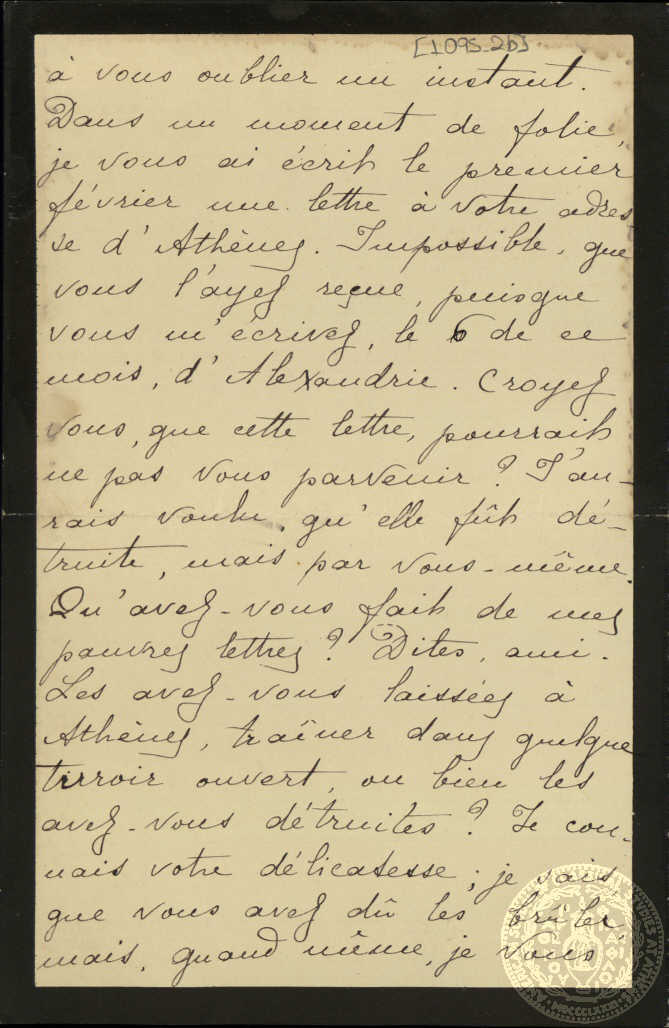 [1095-2b]
à vous oublier un instant.
Dans un moment de folie,
je vous ai écrit le premier
février une lettre à votre adres
se d'Athènes. Impossible, que
vous l'ayez reçue, puisque
vous m'écrivez, le 6 de ce
mois, d'Alexandrie. Croyez
vous, que cette lettre, pourrait
ne pas vous parvenir ? J'au-
rais voulu, qu'elle fût dé-
truite, mais par vous-même.
Qu'avez-vous fait de mes
pauvres lettres ? Dites, ami.
Les avez-vous laissées à
Athènes, traîner dans quelque
tirroir ouvert, ou bien les
avez-vous détruites ? Je con-
nais votre délicatesse ; je sais,
que vous avez dû les brûler,
mais, quand même, je vous